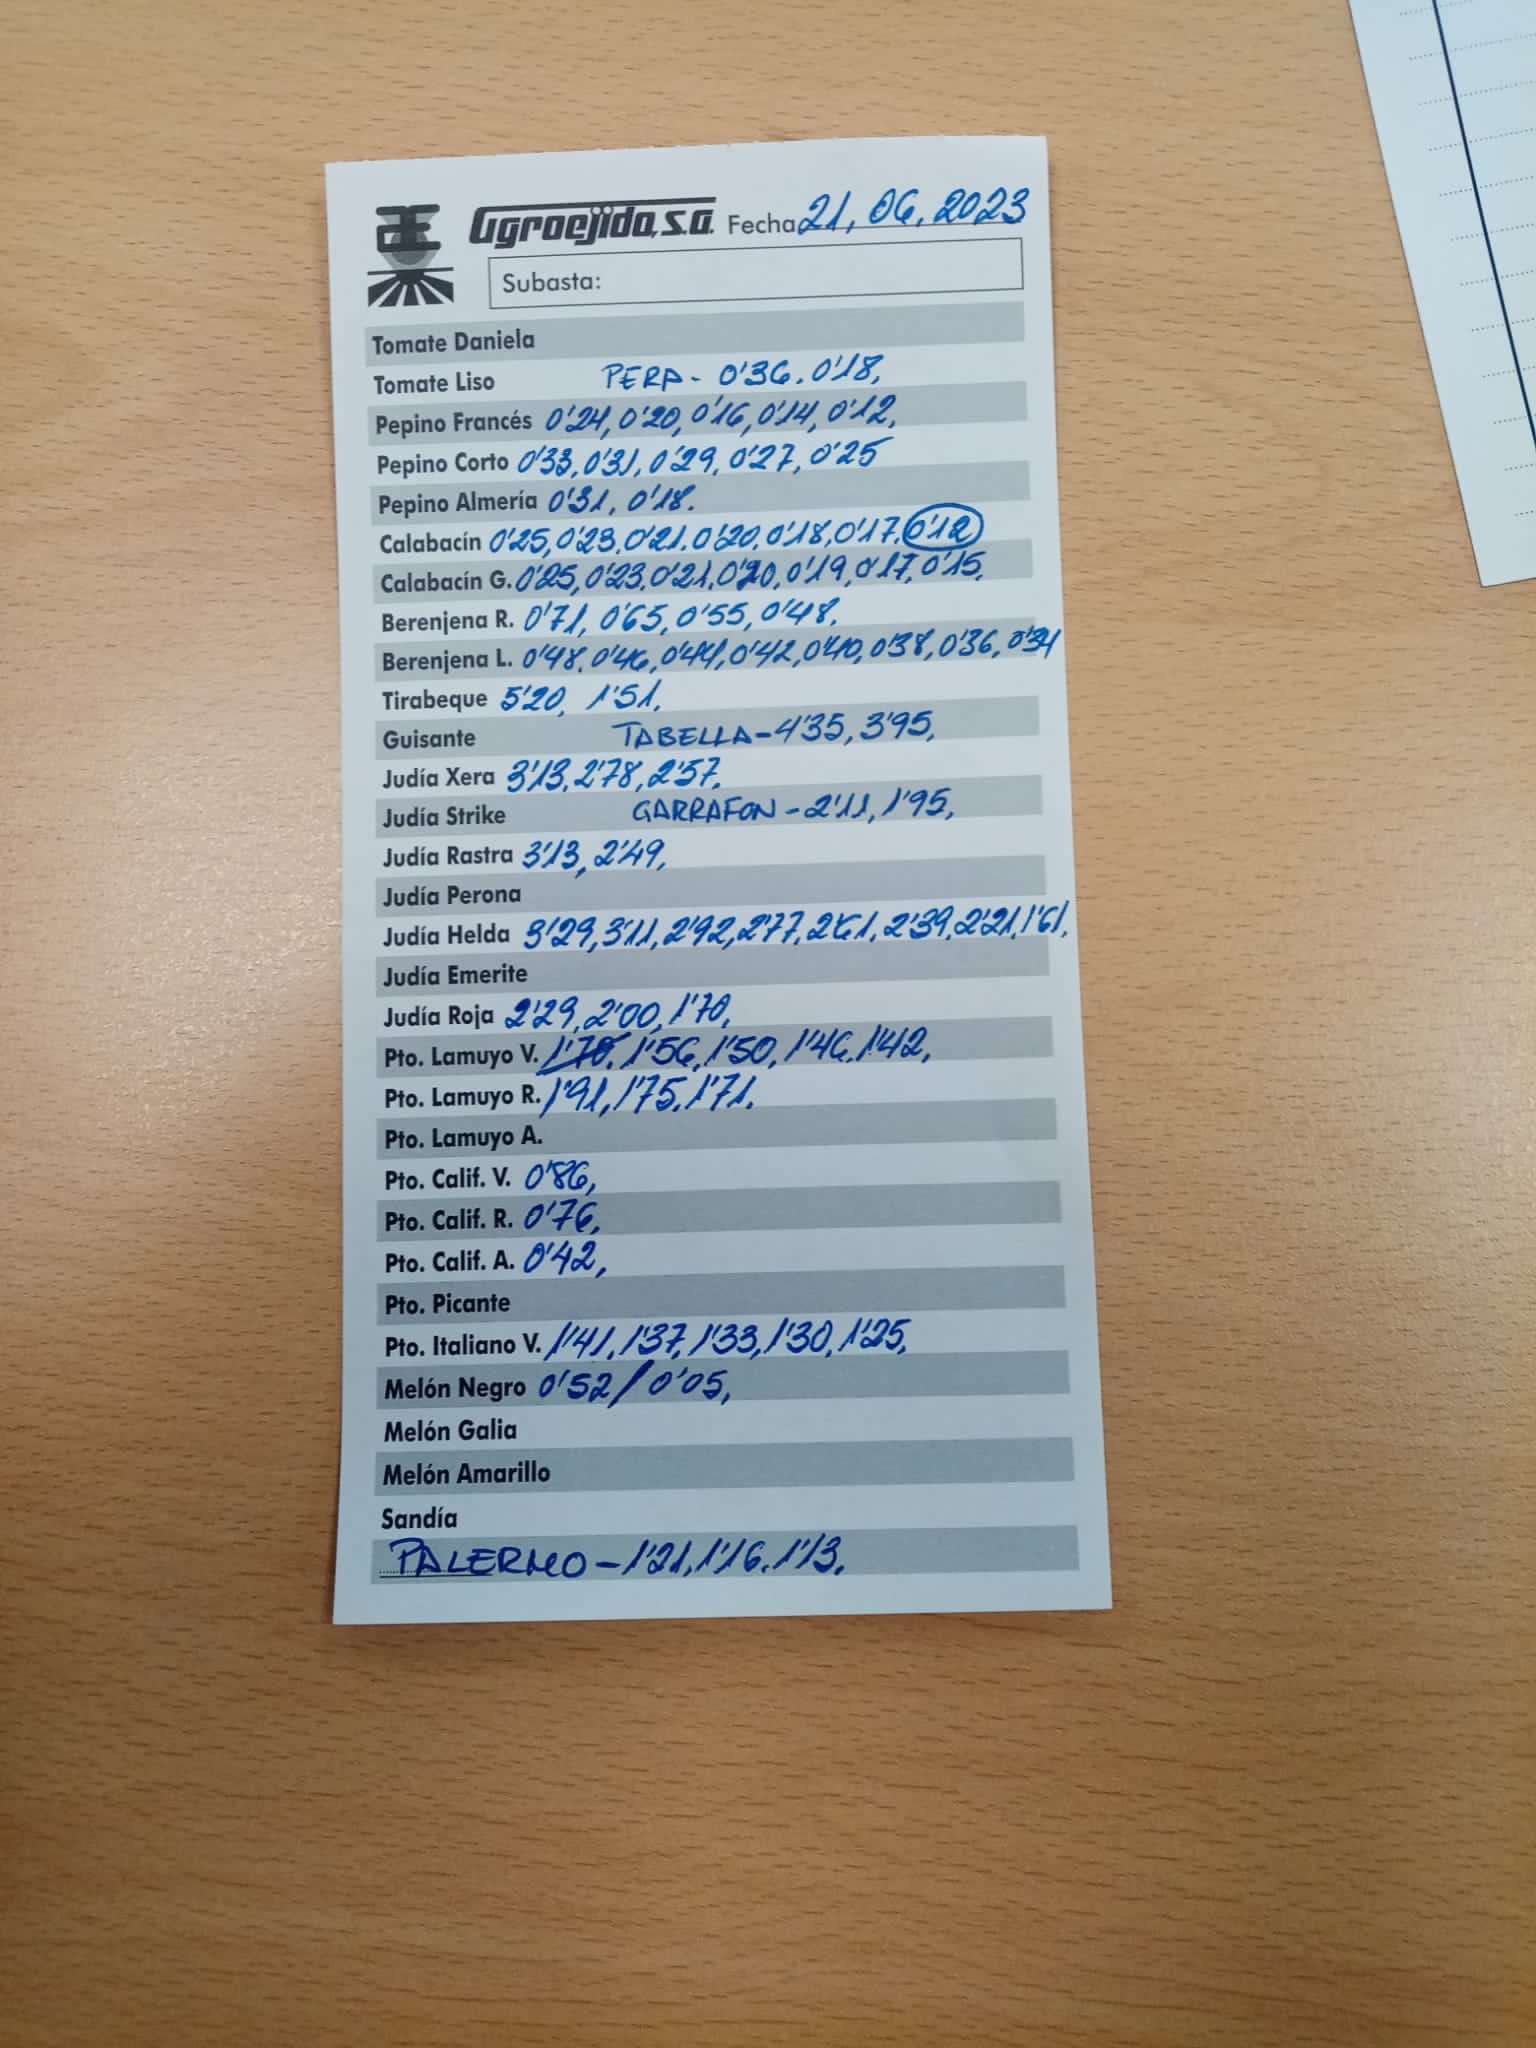 Agroejido, s.a. Fecha 21, 06, 2023
Subasta:
Tomate Daniela
Tomate Liso PERA - 0'36. 0'18,
Pepino Francés 0'24, 0'20, 0'16, 0'14, 0'12,
Pepino Corto 0'33, 0'31, 0'29, 0'27, 0'25
Pepino Almería 0'31, 0'18.
Calabacín 0'25, 0'23, 0'21, 0'20, 0'18, 0'17, 0'12
Calabacín G. 0'25, 0'23, 0'21, 0'20, 0'19, 0'17, 0'15,
Berenjena R. 0'71, 0'65, 0'55, 0'48,
Berenjena L. 0'48, 0'46, 0'44, 0'42, 0'40, 0'38, 0'36, 0'34
Tirabeque 5'20, 1'51,
Guisante TABELLA - 4'35, 3'95,
Judía Xera 3'13, 2'78, 2'57,
Judía Strike GARRAFON - 2'11, 1'95,
Judía Rastra 3'13, 2'49,
Judía Perona
Judía Helda 3'29, 3'11, 2'92, 2'77, 2'61, 2'39, 2'21, 1'61,
Judía Emerite
Judía Roja 2'29, 2'00, 1'70,
Pto. Lamuyo V. 1'70, 1'56, 1'50, 1'46, 1'42,
Pto. Lamuyo R. 1'91, 1'75, 1'71,
Pto. Lamuyo A.
Pto. Calif. V. 0'86,
Pto. Calif. R. 0'76,
Pto. Calif. A. 0'42,
Pto. Picante
Pto. Italiano V. 1'41, 1'37, 1'33, 1'30, 1'25,
Melón Negro 0'52 / 0'05,
Melón Galia
Melón Amarillo
Sandía
PALERMO - 1'21, 1'16, 1'13,